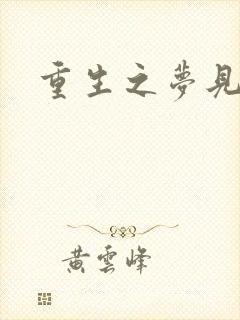 重生之夢見
黃雲峰